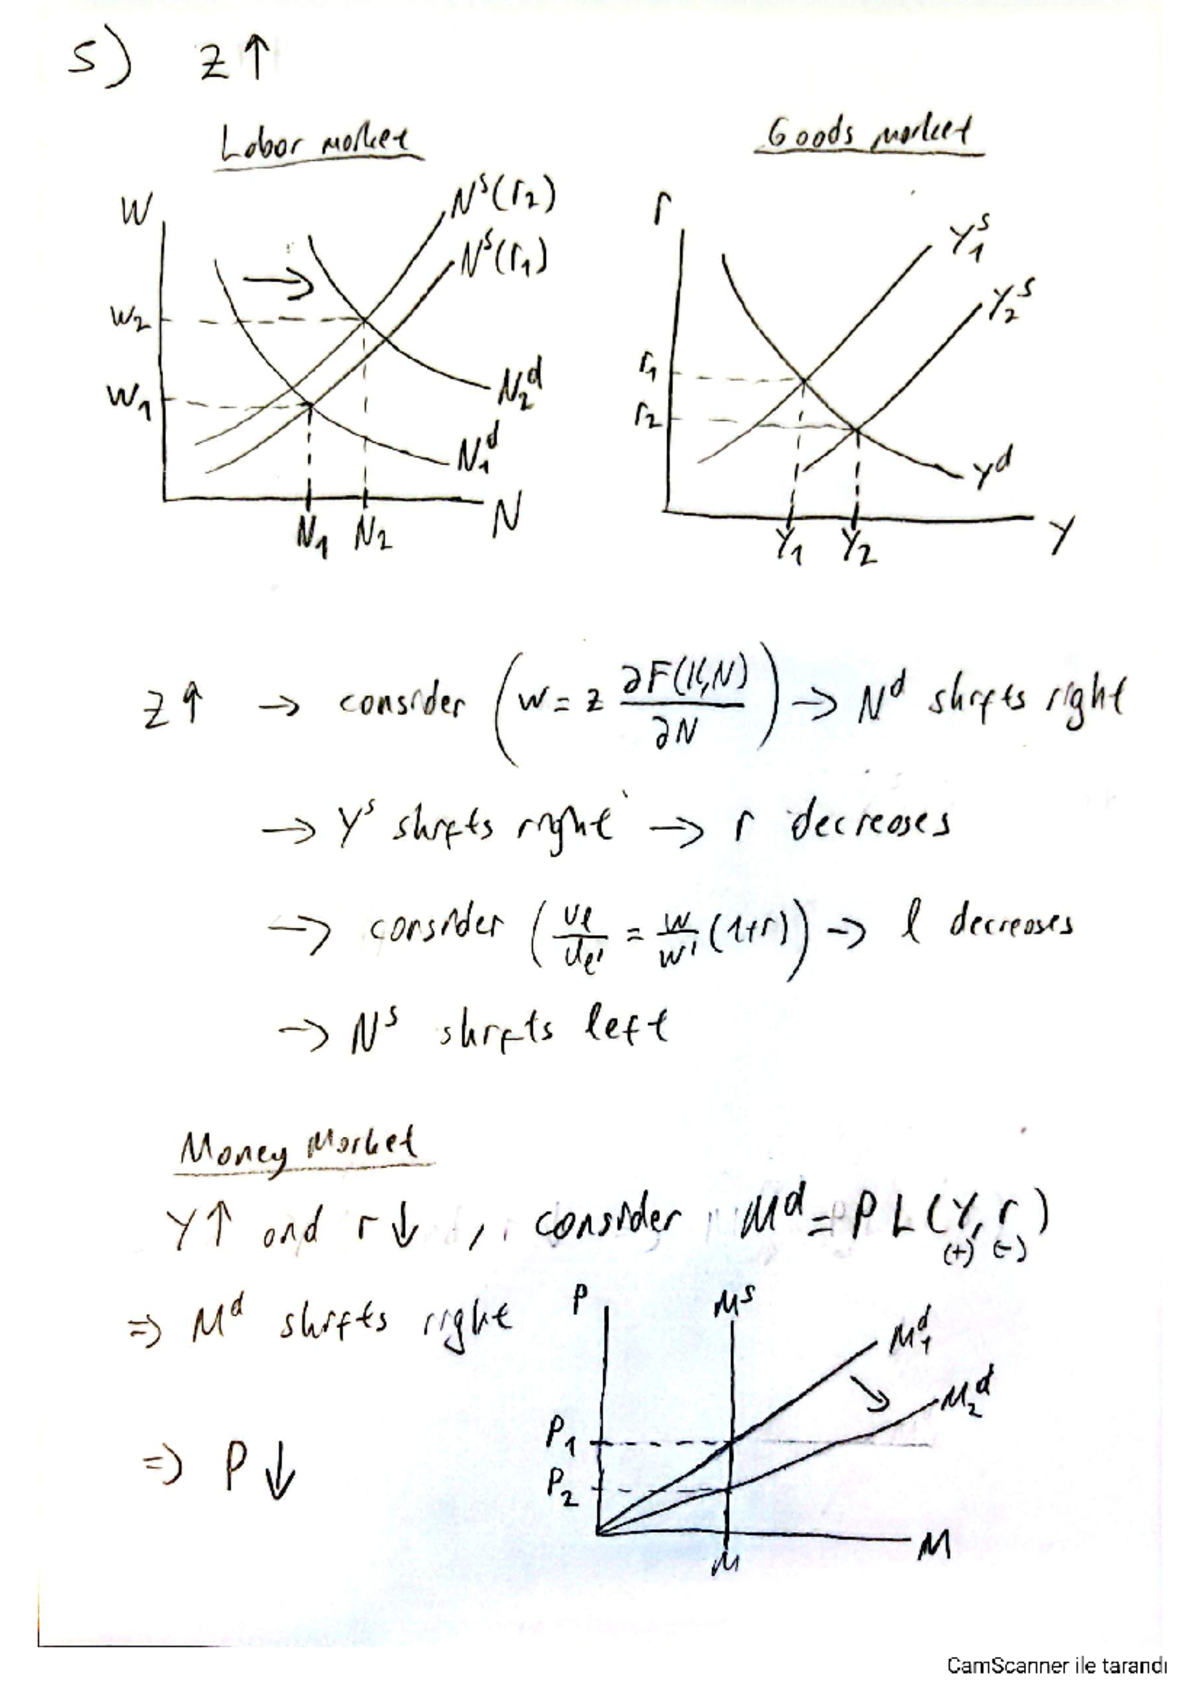 5) z↑
Labor market
Goods market
W
N^s(r₂)
N^s(r₁)
W₂
W₁
N₂^d
N₁^d
N₁ N₂
N
r
Y₁^s
Y₂^s
r₁
r₂
Y^d
Y₁ Y₂
Y
z↑ → consider (w = z ∂F(K,N)/∂N) → N^d shifts right
→ Y^s shifts right → r decreases
→ consider (u_l/u_l' = w/w' (1+r)) → l decreases
→ N^s shifts left
Money Market
Y↑ and r↓, consider M^d = P L(Y, r)
(+) (-)
⇒ M^d shifts right
P
M^s
M₁^d
M₂^d
P₁
P₂
⇒ P↓
M
M
CamScanner ile tarandı